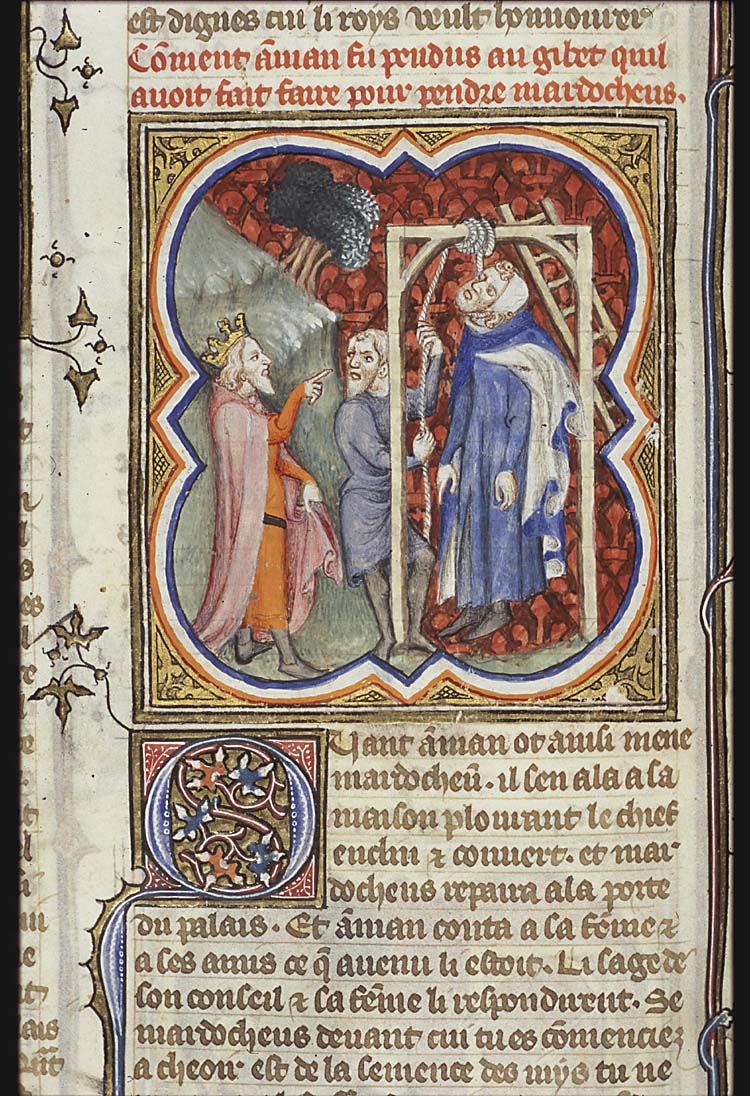 est dignes cui li roys veult honnourer
Cōment āman fu pendus au gibet quil
avoit fait faire pour pendre mardocheus.
Quant āman ot ainsi mene
mardocheū. il sen ala a sa
maison plourant le chief
enclin ⁊ couvert. et mar
docheus repaira a la porte
du palais. Et āman conta a sa fēme ⁊
a ses amis ce q̄ avenu li estoit. Li sage de
son conseil ⁊ sa fēme li respondirent. Se
mardocheus devant cui tu es cōmenciez
a cheoir est de la semence des iuys tu ne